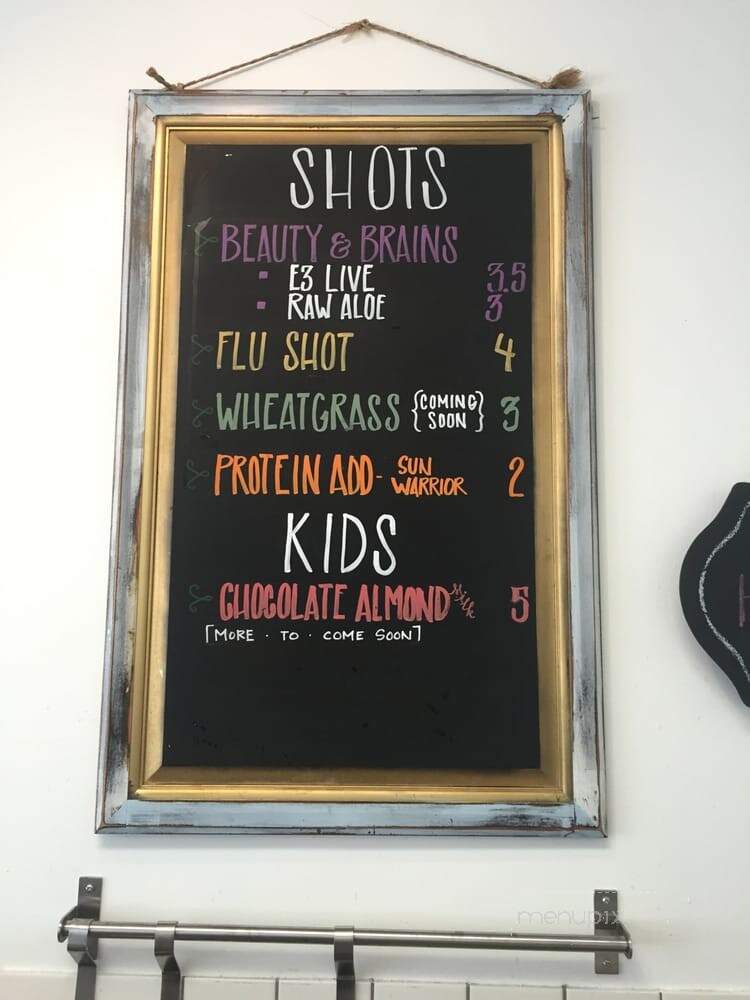 SHOTS
BEAUTY & BRAINS
▪ E3 LIVE 3.5
▪ RAW ALOE 3
FLU SHOT 4
WHEATGRASS {COMING SOON} 3
PROTEIN ADD- SUN WARRIOR 2
KIDS
CHOCOLATE ALMOND Milk 5
[MORE · TO · COME SOON]
menupix